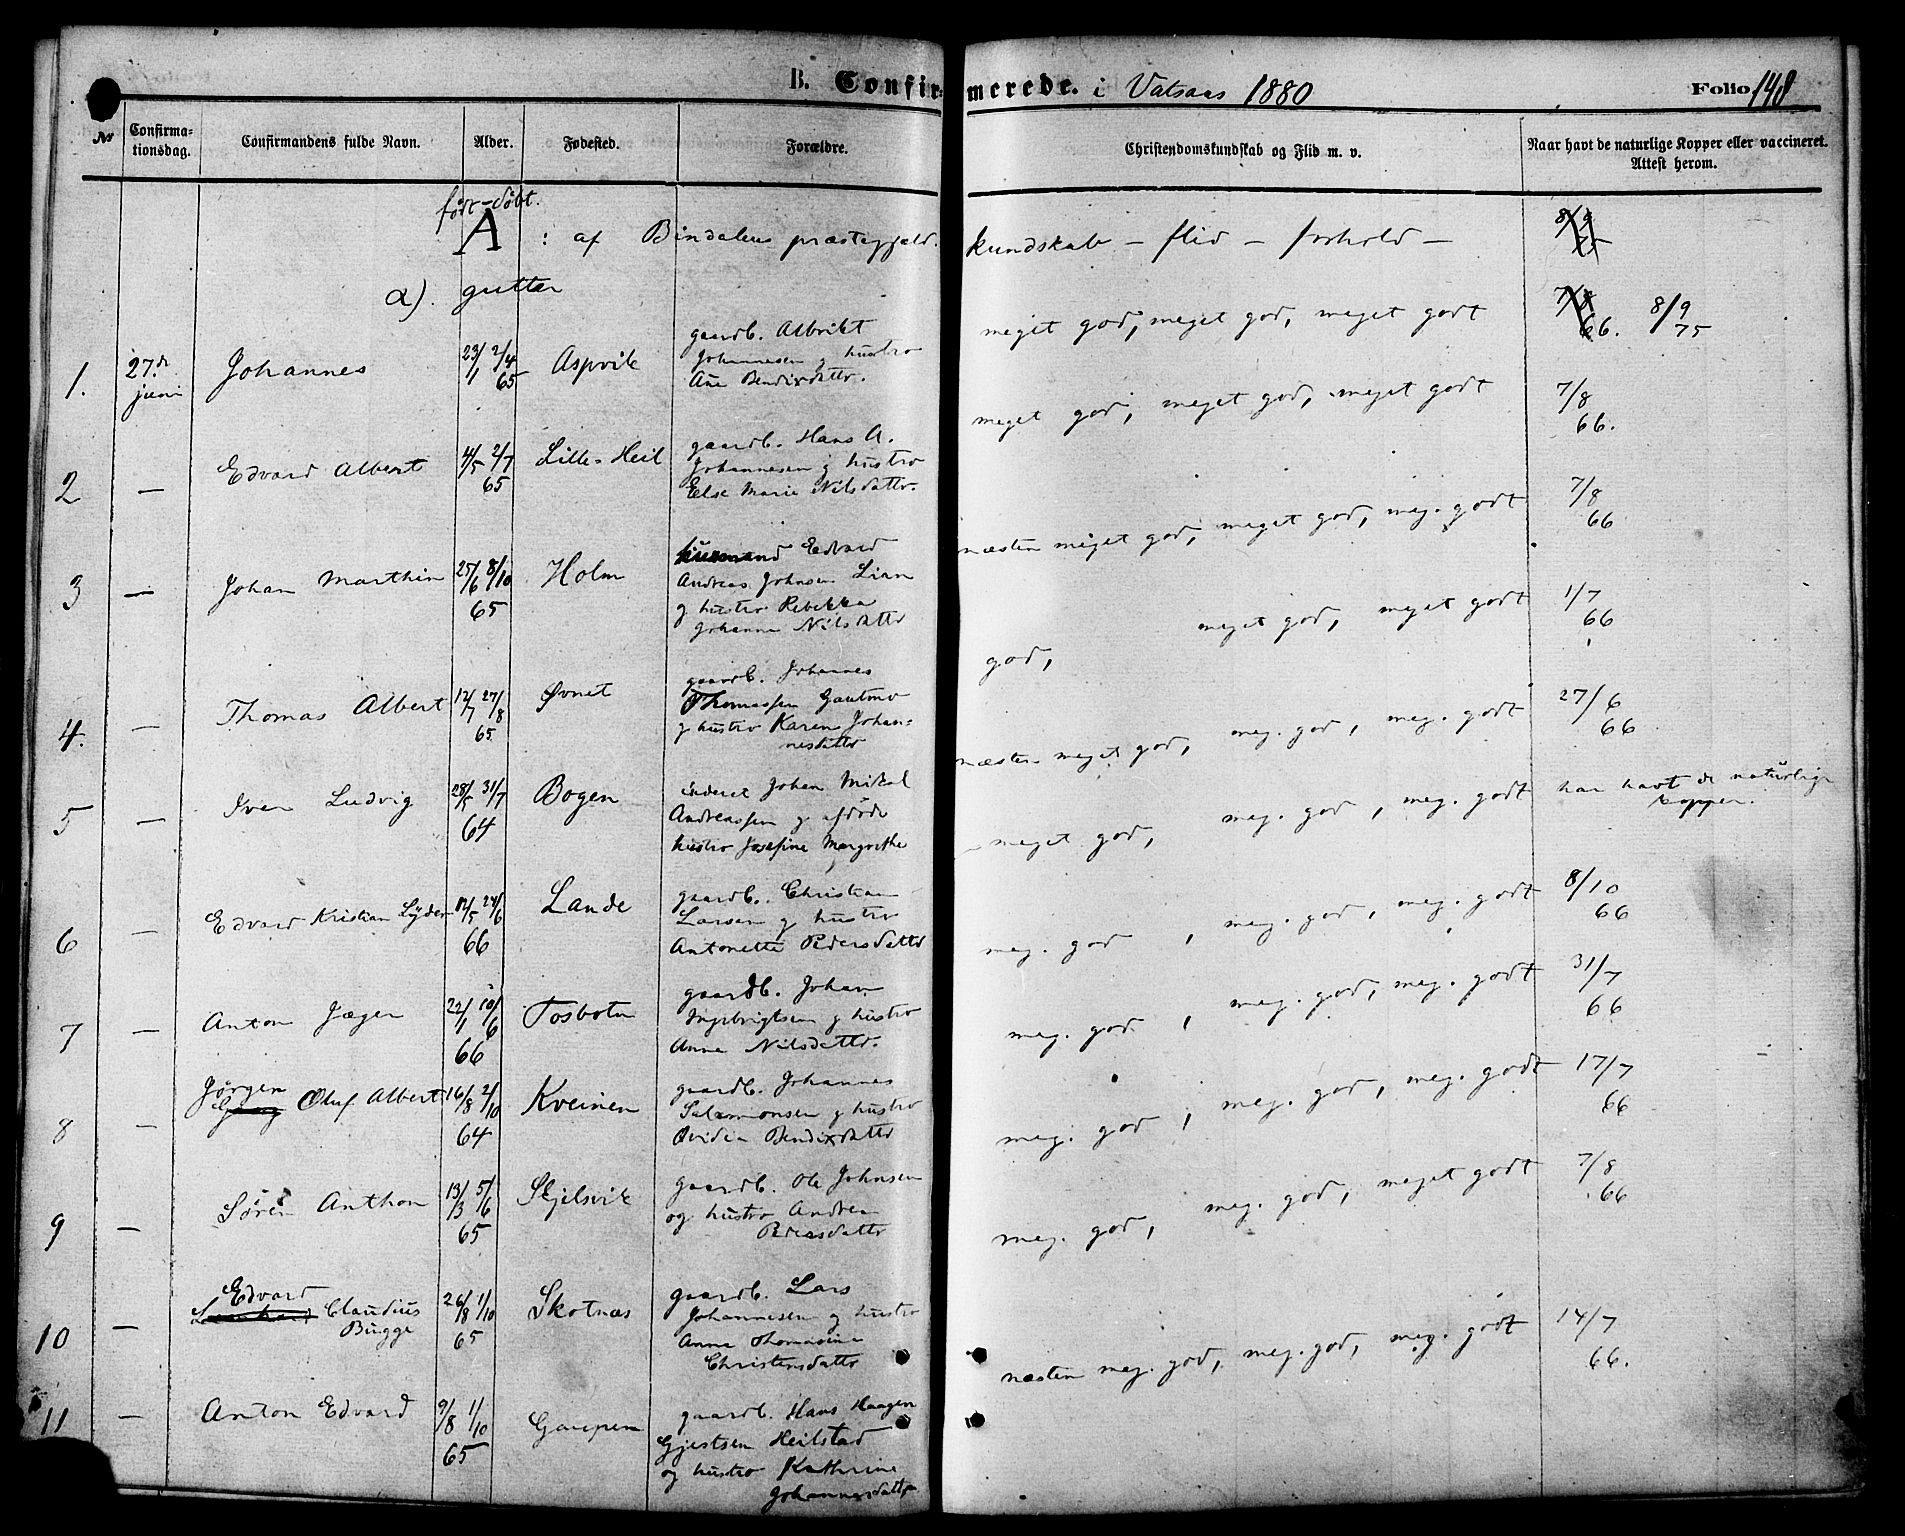 B. Confirmerede. i Vatsaas 1880 Folio 148
№ Confirmationsdag. Confirmandens fulde Navn. Alder. Fødested. Forældre. Christendomskundskab og Flid m. v. Naar havt de naturlige Kopper eller vaccineret. Attest herom.
født - døbt.
A : af Bindalens præstegjæld. kundskab - flid - forhold - 8/9 75
a). gutter
7/8 66. 8/9 75
meget god, meget god, meget godt
1. 27.de juni Johannes 23/1 2/4 65 Aspvik gaardb. Albrikt
Johannesen g hustro
Ane Bendixdattr.
meget god, meget god, meget godt 7/8 66.
2 — Edvard Albert 4/5 2/7 65 Lille-Heil gaardb. Hans A.
Johannesen g hustro
Else Marie Nilsdattr.
næsten meget god, meget god, meg. godt 7/8 66
3 — Johan Marthin 25/6 8/10 65 Holm husmand Edvard
Andreas Johnsen Lian
g hustro Rebekka
Johanna Nilsdattr
god, meget god, meget godt 1/7 66
4. — Thomas Albert 12/7 27/8 65 Øvnet gaardb. Johannes
Thomassen Gautmo
g hustro Karen Johan-
nesdattr
næsten meget god, meg. god, meg. godt 27/6 66
5 — Iver Ludvig 28/5 31/7 64 Bogen inderst Johan Mikal
Andreassen g afdøde
hustro Josefine Margrethe
meget god, meg. god, meg. godt har havt de naturlige
kopper.
6 — Edvard Kristian Lyder 12/5 24/6 66 Lande gaardb. Christian
Larsen g hustro
Antonette Pedersdattr
meg. god, meg. god, meg. godt 8/10 66
7 — Anton Jæger 22/1 10/6 66 Tosbotn gaardb. Johan
Ingebrigtsen g hustro
Anne Nilsdattr.
meg. god, meg. god, meg. godt 31/7 66
8 — Jørgen Oluf Albert 16/8 2/10 64 Kveinen gaardb. Johannes
Salamonsen g hustro
Ovidia Bendixdattr
meg. god, meg. god, meg. godt 17/7 66
9 — Sören Anthon 13/3 5/6 65 Skjelsvik gaardb. Ole Johnsen
og hustro Andrea
Pedersdattr
meg. god, meg. god, meget godt 7/8 66
10 — Edvard Claudius
Bugge 26/8 1/10 65 Skotnæs gaardb. Lars
Johannesen g hustro
Anna Thomasine
Christensdattr
næsten meg. god, meg. god, meg. godt 14/7 66.
11 — Anton Edvard 9/8 1/10 65 Gaupen gaardb. Hans Haagen
Gjestsen Heilstad
og hustro Kathrine
Johannesdattr